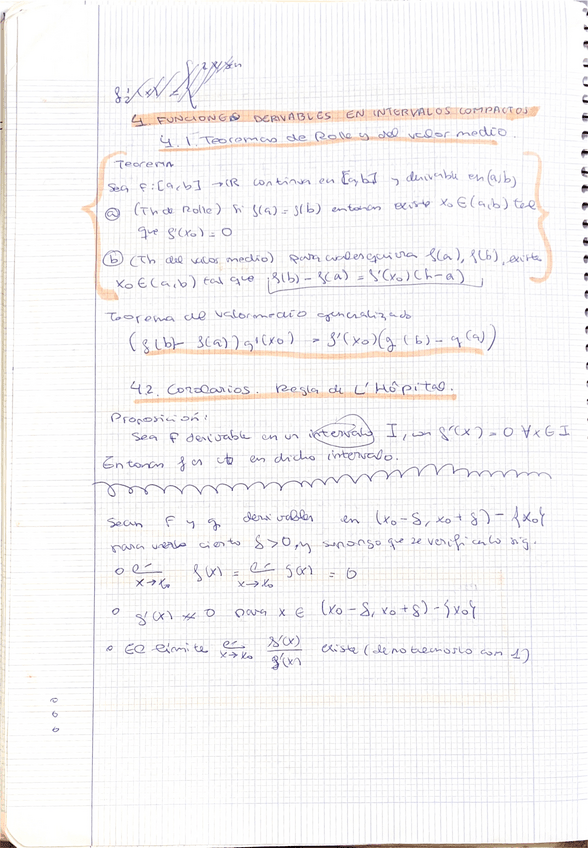 4. FUNCIONES DERIVABLES EN INTERVALOS COMPACTOS
4.1. Teoremas de Rolle y del valor medio.
Teorema
Sea f: [a,b] → ℝ continua en [a,b] y derivable en (a,b)
ⓐ (Th de Rolle) Si f(a) = f(b) entonces existe x₀ ∈ (a,b) tal
que f'(x₀) = 0
ⓑ (Th del valor medio) para cualesquiera f(a), f(b), existe
x₀ ∈ (a,b) tal que f(b) - f(a) = f'(x₀)(b-a)
Teorema del valor medio generalizado
(f(b) - f(a)) g'(x₀) = f'(x₀)(g(b) - g(a))
4.2. Corolarios. Regla de L'Hôpital.
Proposición:
Sea f derivable en un intervalo I, con f'(x) = 0 ∀x ∈ I
Entonces f es cte en dicho intervalo.
Sean f y g derivables en (x₀-δ, x₀+δ) - {x₀}
para cierto δ>0, y supongo que se verifica lo sig.
o x→x₀ f(x) = x→x₀ g(x) = 0
o g'(x) ≠ 0 para x ∈ (x₀-δ, x₀+δ) - {x₀}
o El límite x→x₀ f'(x)/g'(x) existe (denotémoslo con l)